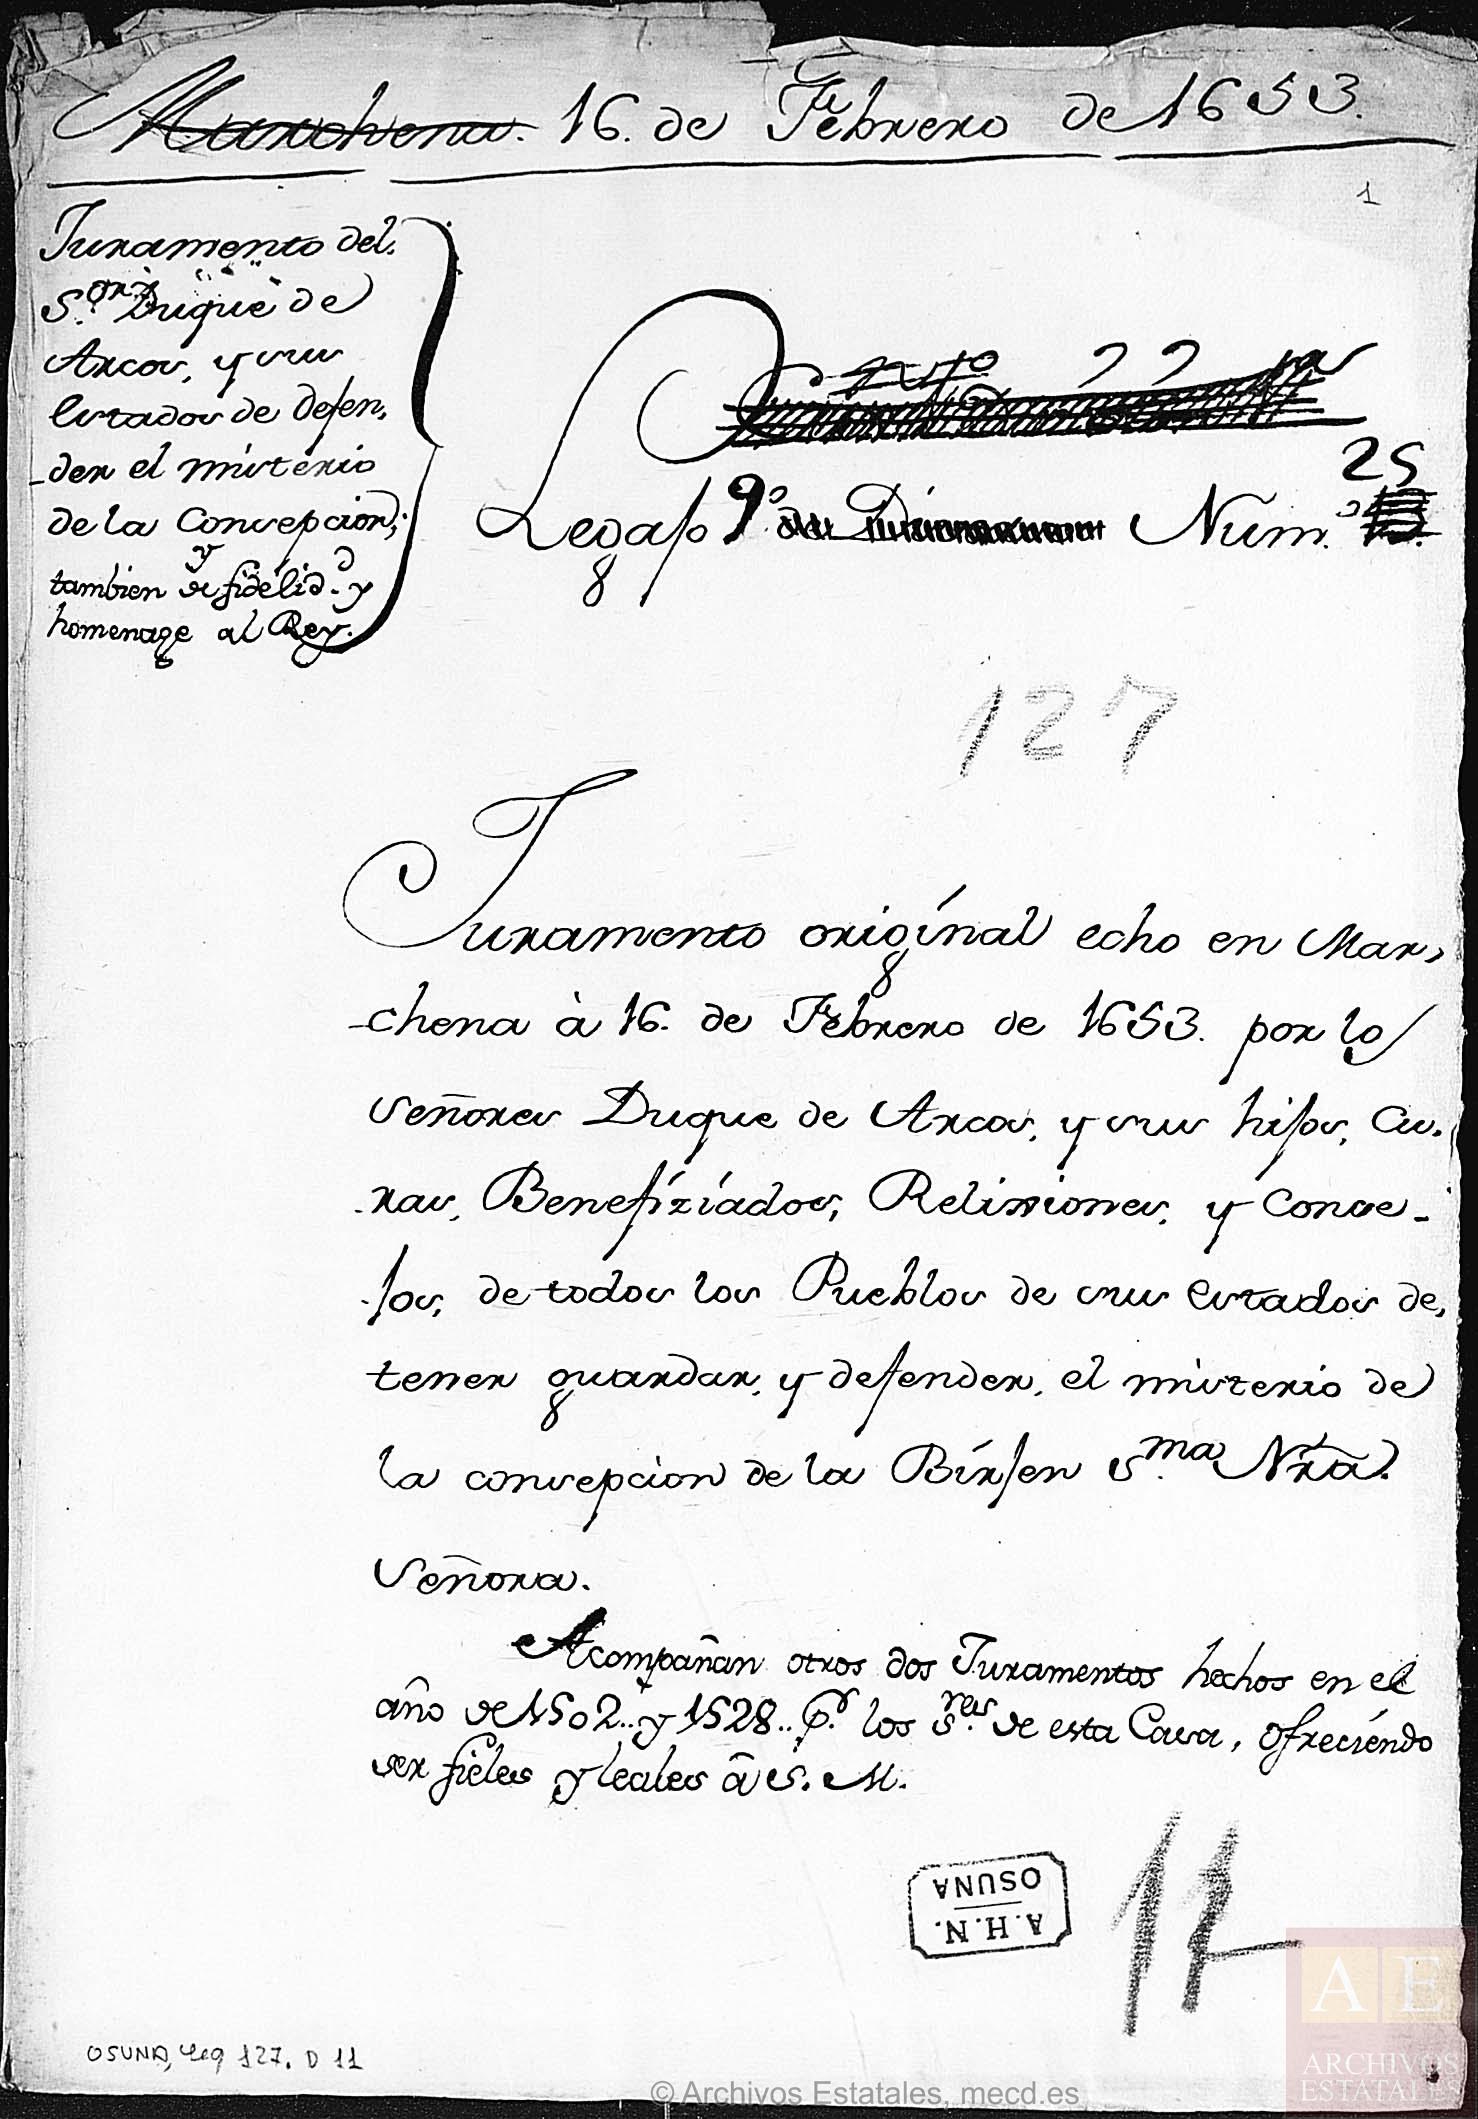 Marchena. 16. de Febrero de 1653.
1
Juramento del.
S.ores Duque de
Arcos, y sus
estados de defen,
-der el misterio
de la Concepcion;
y
tambien de fidelid.d y
homenage al Rey.
25
Legajo 9.o Num.o
127
Juramento original echo en Mar,
-chena à 16. de Febrero de 1653. por lo
señores Duque de Arcos, y sus hijos, Cu.
.ras, Benefiziados, Relixiones, y Conce-
.jos, de todos los Pueblos de sus estados de,
tener guardar, y defender, el misterio de
la concepcion de la Birjen S.ma Nrâ.
Señora.
Acompañan otros dos Juramentos hechos en el
año de 1502.. y 1528.. p.r los S.res de esta Casa, ofreciendo
ser fieles y leales â S. M.
A.H.N.
OSUNA
11
OSUNA, Leg 127. D 11
© Archivos Estatales, mecd.es
AE
ARCHIVOS
ESTATALES